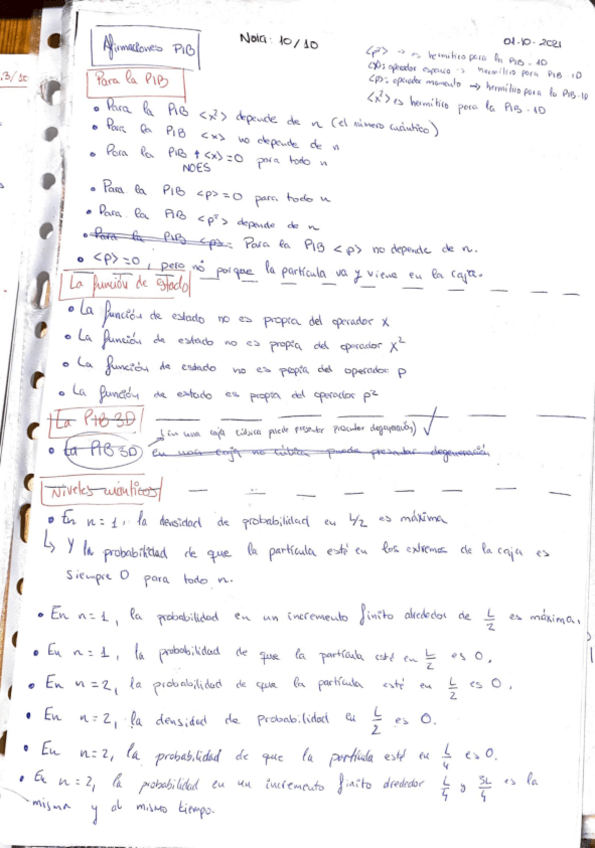 Afirmaciones PIB
Nota: 10/10
01-10-2021
<p²> → es hermítico para la PIB-1D
<x>: operador espacio → hermítico para PIB 1D
<p>: operador momento → hermítico para la PIB-1D
<x²> es hermítico para la PIB-1D
Para la PIB
• Para la PIB <x²> depende de n (el número cuántico)
• Para la PIB <x> no depende de n
• Para la PIB <x>=0 para todo n
NO ES
• Para la PIB <p>=0 para todo n
• Para la PIB <p²> depende de n
• Para la PIB <p>: Para la PIB <p> no depende de n.
• <p>=0, pero no porque la partícula va y viene en la caja.
La función de estado
• La función de estado no es propia del operador x
• La función de estado no es propia del operador x²
• La función de estado no es propia del operador p
• La función de estado es propia del operador p²
La PIB 3D
(en una caja cúbica puede presentar degeneración) ✓
• La PIB 3D en una caja no cúbica puede presentar degeneración
Niveles cuánticos
• En n=1, la densidad de probabilidad en L/2 es máxima
↳ Y la probabilidad de que la partícula esté en los extremos de la caja es
siempre 0 para todo n.
• En n=1, la probabilidad en un incremento finito alrededor de L/2 es máxima.
• En n=1, la probabilidad de que la partícula esté en L/2 es 0.
• En n=2, la probabilidad de que la partícula esté en L/2 es 0.
• En n=2, la densidad de probabilidad en L/2 es 0.
• En n=2, la probabilidad de que la partícula esté en L/4 es 0.
• En n=2, la probabilidad en un incremento finito alrededor L/4 y 3L/4 es la
misma y al mismo tiempo.